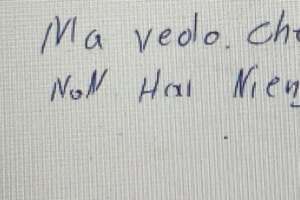 Ma vedo. Ch
NoN Hai Nien